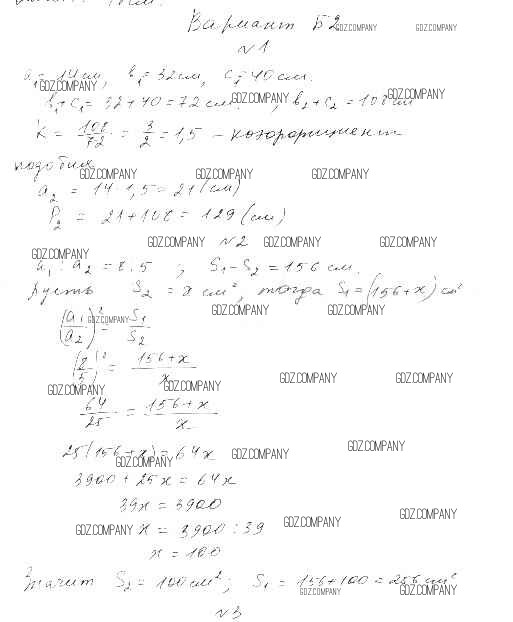 Вариант Б2
GDZ.COMPANY GDZ.COMPANY
N1
a₁ = 14 см, b₁ = 32 см, c₁ = 40 см.
GDZ.COMPANY GDZ.COMPANY GDZ.COMPANY
b₁ + c₁ = 32 + 40 = 72 см; b₂ + c₂ = 108 см
K = 108/72 = 3/2 = 1,5 - коэффициент
подобия
GDZ.COMPANY GDZ.COMPANY GDZ.COMPANY
a₂ = 14 · 1,5 = 21 (см)
P₂ = 21 + 108 = 129 (см)
GDZ.COMPANY N2 GDZ.COMPANY GDZ.COMPANY
GDZ.COMPANY
a₁ : a₂ = 8 : 5 ; S₁ - S₂ = 156 см.
Пусть S₂ = x см², тогда S₁ = (156 + x) см²
GDZ.COMPANY GDZ.COMPANY GDZ.COMPANY
(a₁/a₂)² = S₁/S₂
(8/5)² = (156 + x)/x
GDZ.COMPANY GDZ.COMPANY GDZ.COMPANY GDZ.COMPANY
64/25 = (156 + x)/x
25(156 + x) = 64x
GDZ.COMPANY GDZ.COMPANY GDZ.COMPANY
3900 + 25x = 64x
39x = 3900
GDZ.COMPANY GDZ.COMPANY GDZ.COMPANY
x = 3900 : 39
x = 100
Значит S₂ = 100 см²; S₁ = 156 + 100 = 256 см²
GDZ.COMPANY GDZ.COMPANY
N3